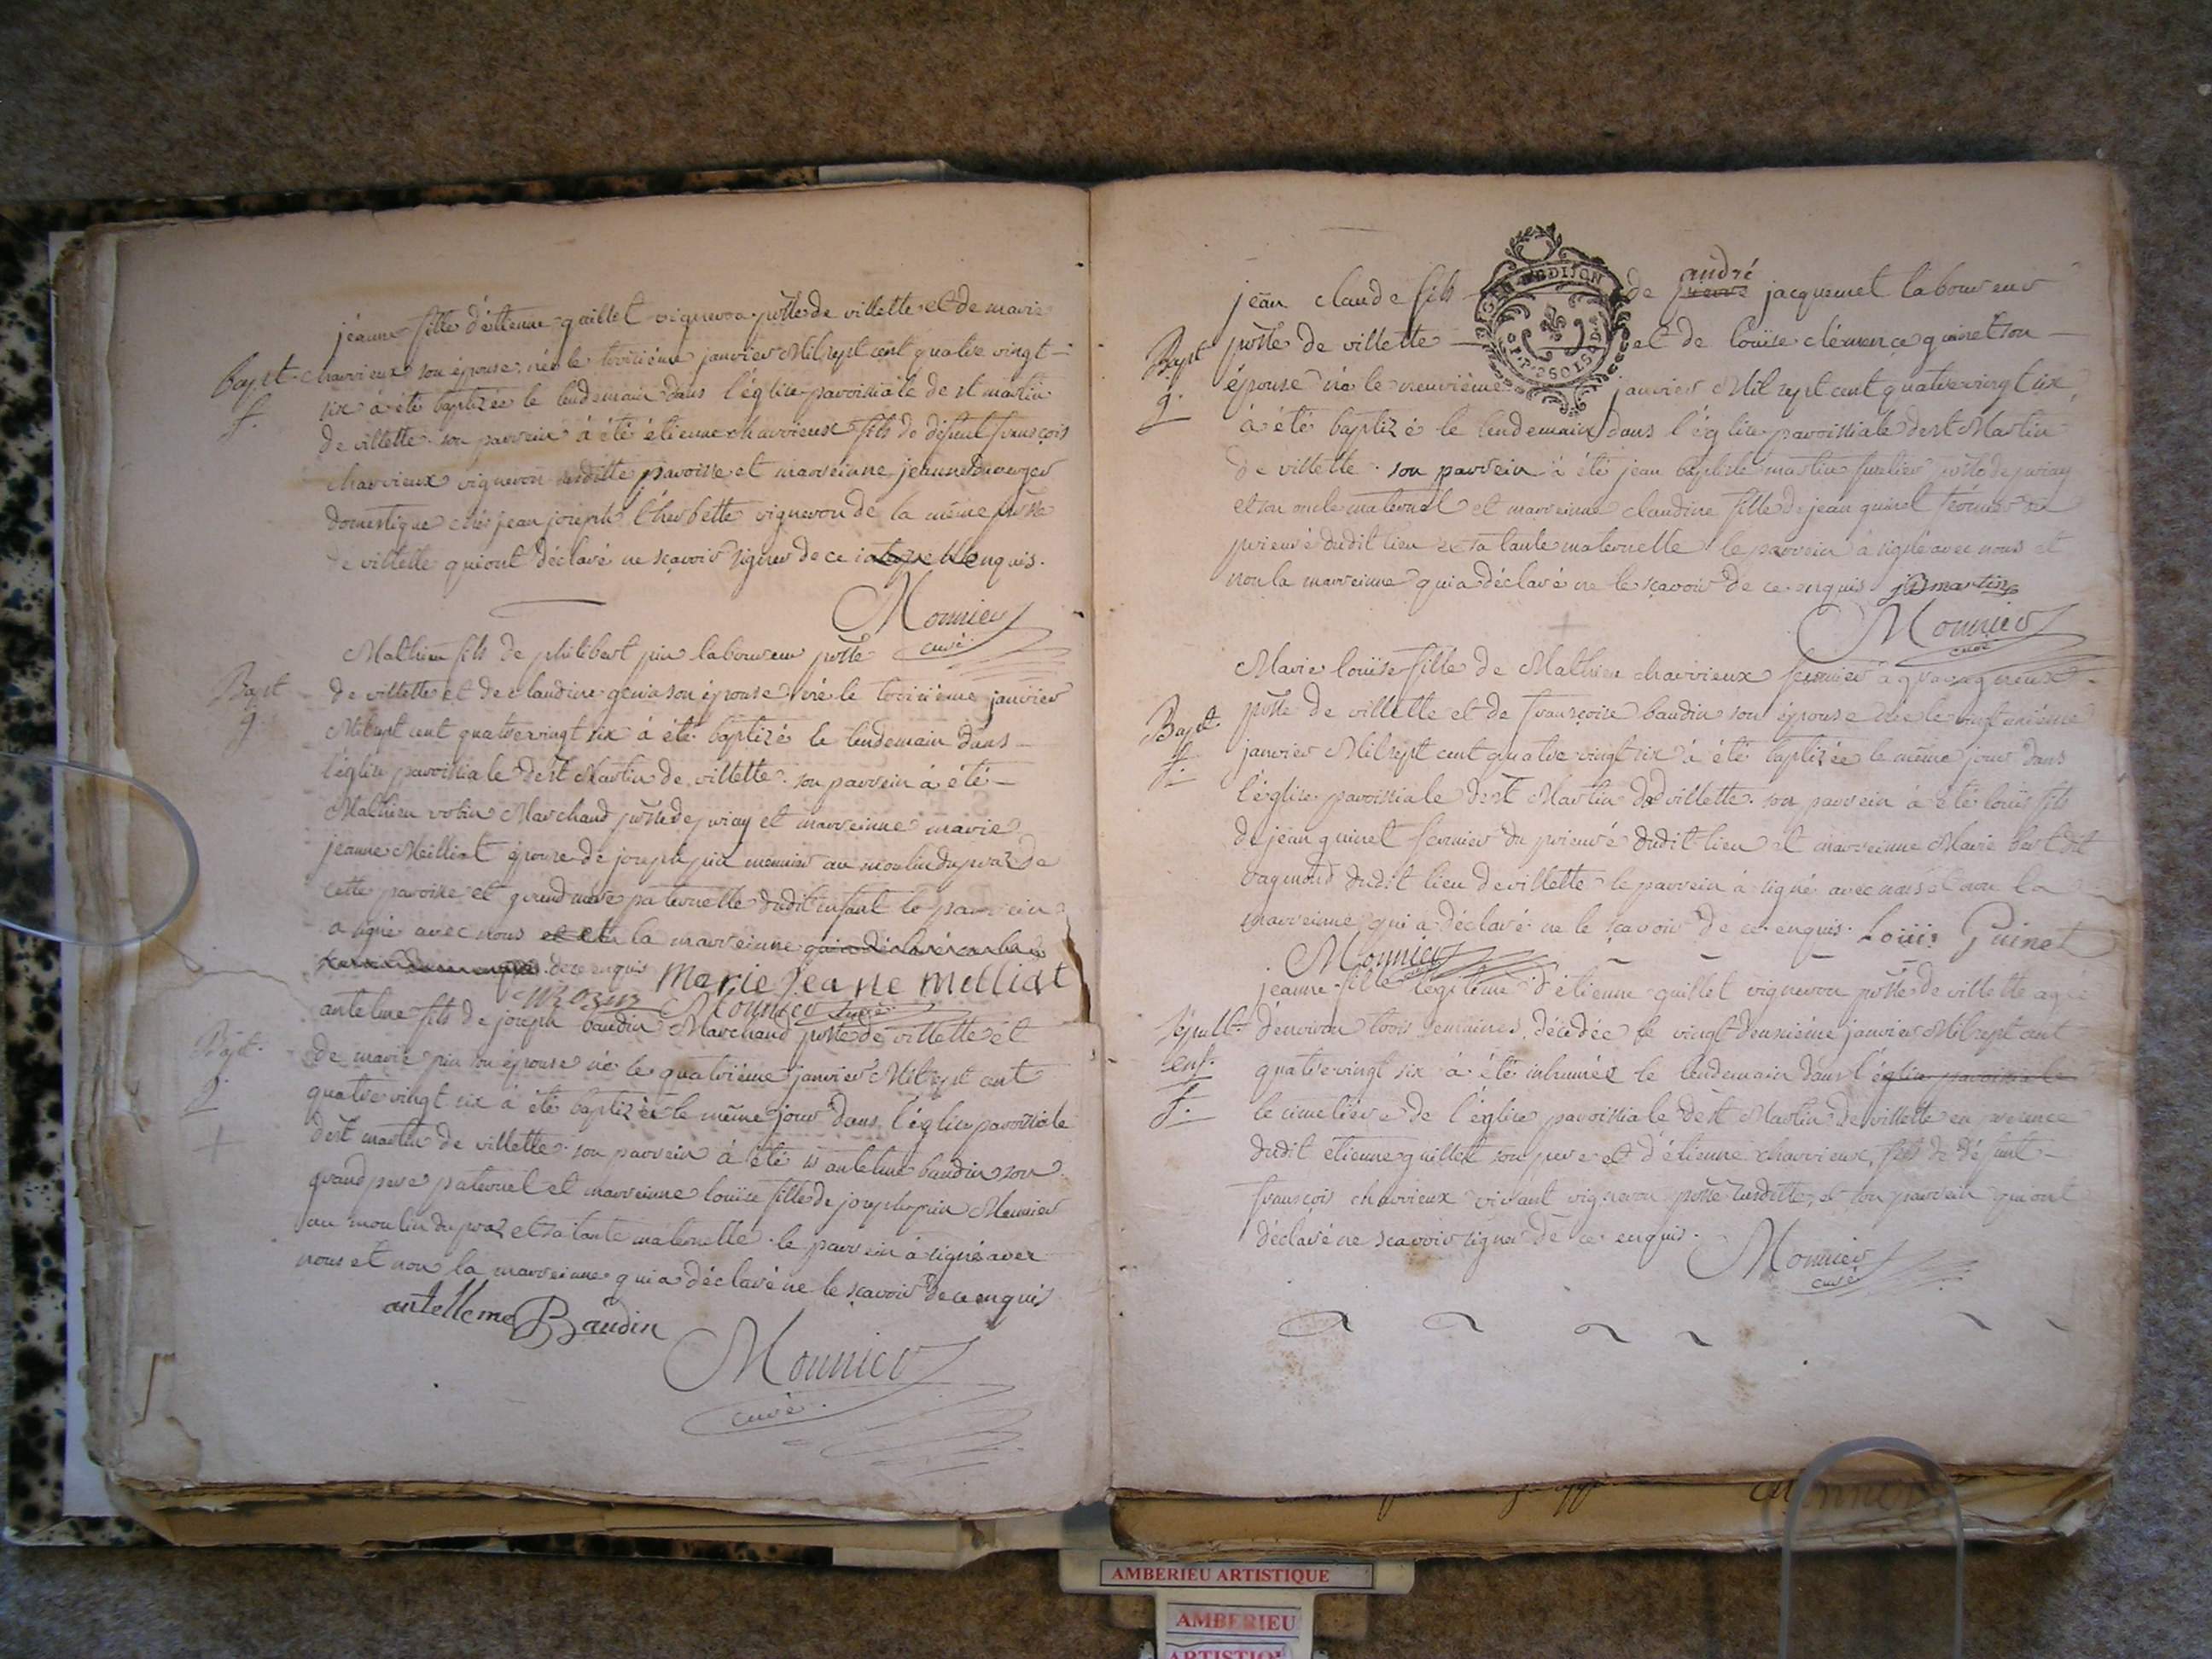 jeanne fille d'étienne quillet vigneron psse de villette et de marie
bapt. charvieux son épouse née le troisième janvier Mil sept cent quatre vingt
f. six à été baptizée le lendemain dans l'église paroissiale de st martin
de villette. son parrein à été étienne charvieux fils de défunt françois
charvieux vigneron susditte paroisse et marreinne jeanne
domestique chés jean joseph l'herbette vigneron de la même psse
de villette qui ont déclaré ne sçavoir signer de ce enquis.
Monnier
curé
Mathieu fils de philibert pin laboureur psse
Bapt de villette et de claudine genia son épouse né le troisième janvier
g. Mil sept cent quatre vingt six à été baptizé le lendemain dans
l'église paroissiale de st Martin de villette. son parrein à été
Mathieu robin Marchand psse de priay et marreinne marie
jeanne Meilliat épouse de joseph pin meunier au moulin du praz de
cette paroisse et grand mère paternelle dudit enfant le parrein
a signé avec nous et la marreinne
de ce enquis Marie Jeane Melliat
Monnier curé
antelme fils de joseph baudin Marchand psse de villette et
Bapt. de marie pin son épouse né le quatrième janvier Mil sept cent
g. quatre vingt six à été baptizé le même jour dans l'église paroissiale
de st martin de villette. son parrein à été sr antelme baudin son
grand pere paternel et marreinne louise fille de joseph pin Meunier
au moulin du praz et sa tante maternelle. le parrein à signé avec
nous et non la marreinne qui a déclaré ne le sçavoir de ce enquis
antelleme Baudin
Monnier
curé.
andré
jean claude fils de pierre jacquemet laboureur
Bapt psse de villette et de louise clémence quinet son
g. épouse né le neuvième janvier Mil sept cent quatre vingt six
à été baptizé le lendemain dans l'église paroissiale de st Martin
de villette. son parrein à été jean baptiste martin psse de priay
et son oncle maternel et marreinne claudine fille de jean quinet fermier du
prieuré dudit lieu et sa tante maternelle le parrein à signé avec nous et
non la marreinne qui a déclaré ne le sçavoir de ce enquis jB martin
Monnier
curé
Marie louise fille de Mathieu charvieux fermier à
Bapt. psse de villette et de françoise baudin son épouse née le vingt unième
f. janvier Mil sept cent quatre vingt six à été baptizée le même jour dans
l'église paroissiale de st Martin de villette. son parrein à été louis fils
de jean quinet fermier du prieuré dudit lieu et marreinne Marie
dudit lieu de villette le parrein à signé avec nous et non la
marreinne qui a déclaré ne le sçavoir de ce enquis. Loüis Guinet
Monnier
jeanne fille légitime d'étienne quillet vigneron psse de villette agée
sépult. d'environ trois semaines, décédée le vingt deuxième janvier Mil sept cent
enf. quatre vingt six à été inhumée le lendemain dans l'église paroissiale
f. le cimetière de l'église paroissiale de st Martin de villette en présence
dudit etienne quillet son pere et d'étienne charvieux, fils de défunt
françois charvieux vivant vigneron psse susditte, et son parrein qui ont
déclaré ne sçavoir signer de ce enquis.
Monnier
curé
AMBERIEU ARTISTIQUE
AMBERIEU
ARTISTIQUE